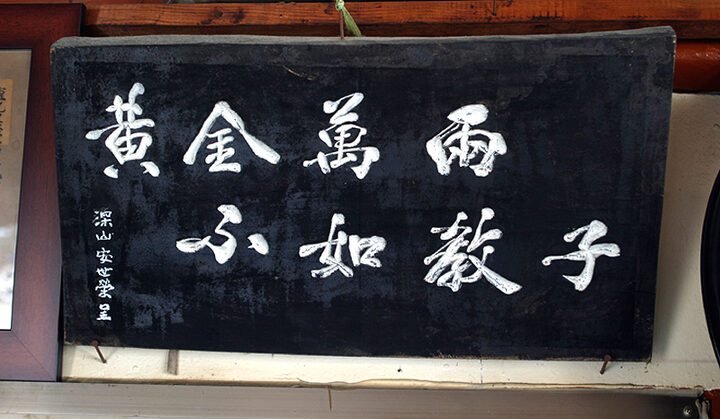 黃金萬兩
不如教子
深山安世榮呈